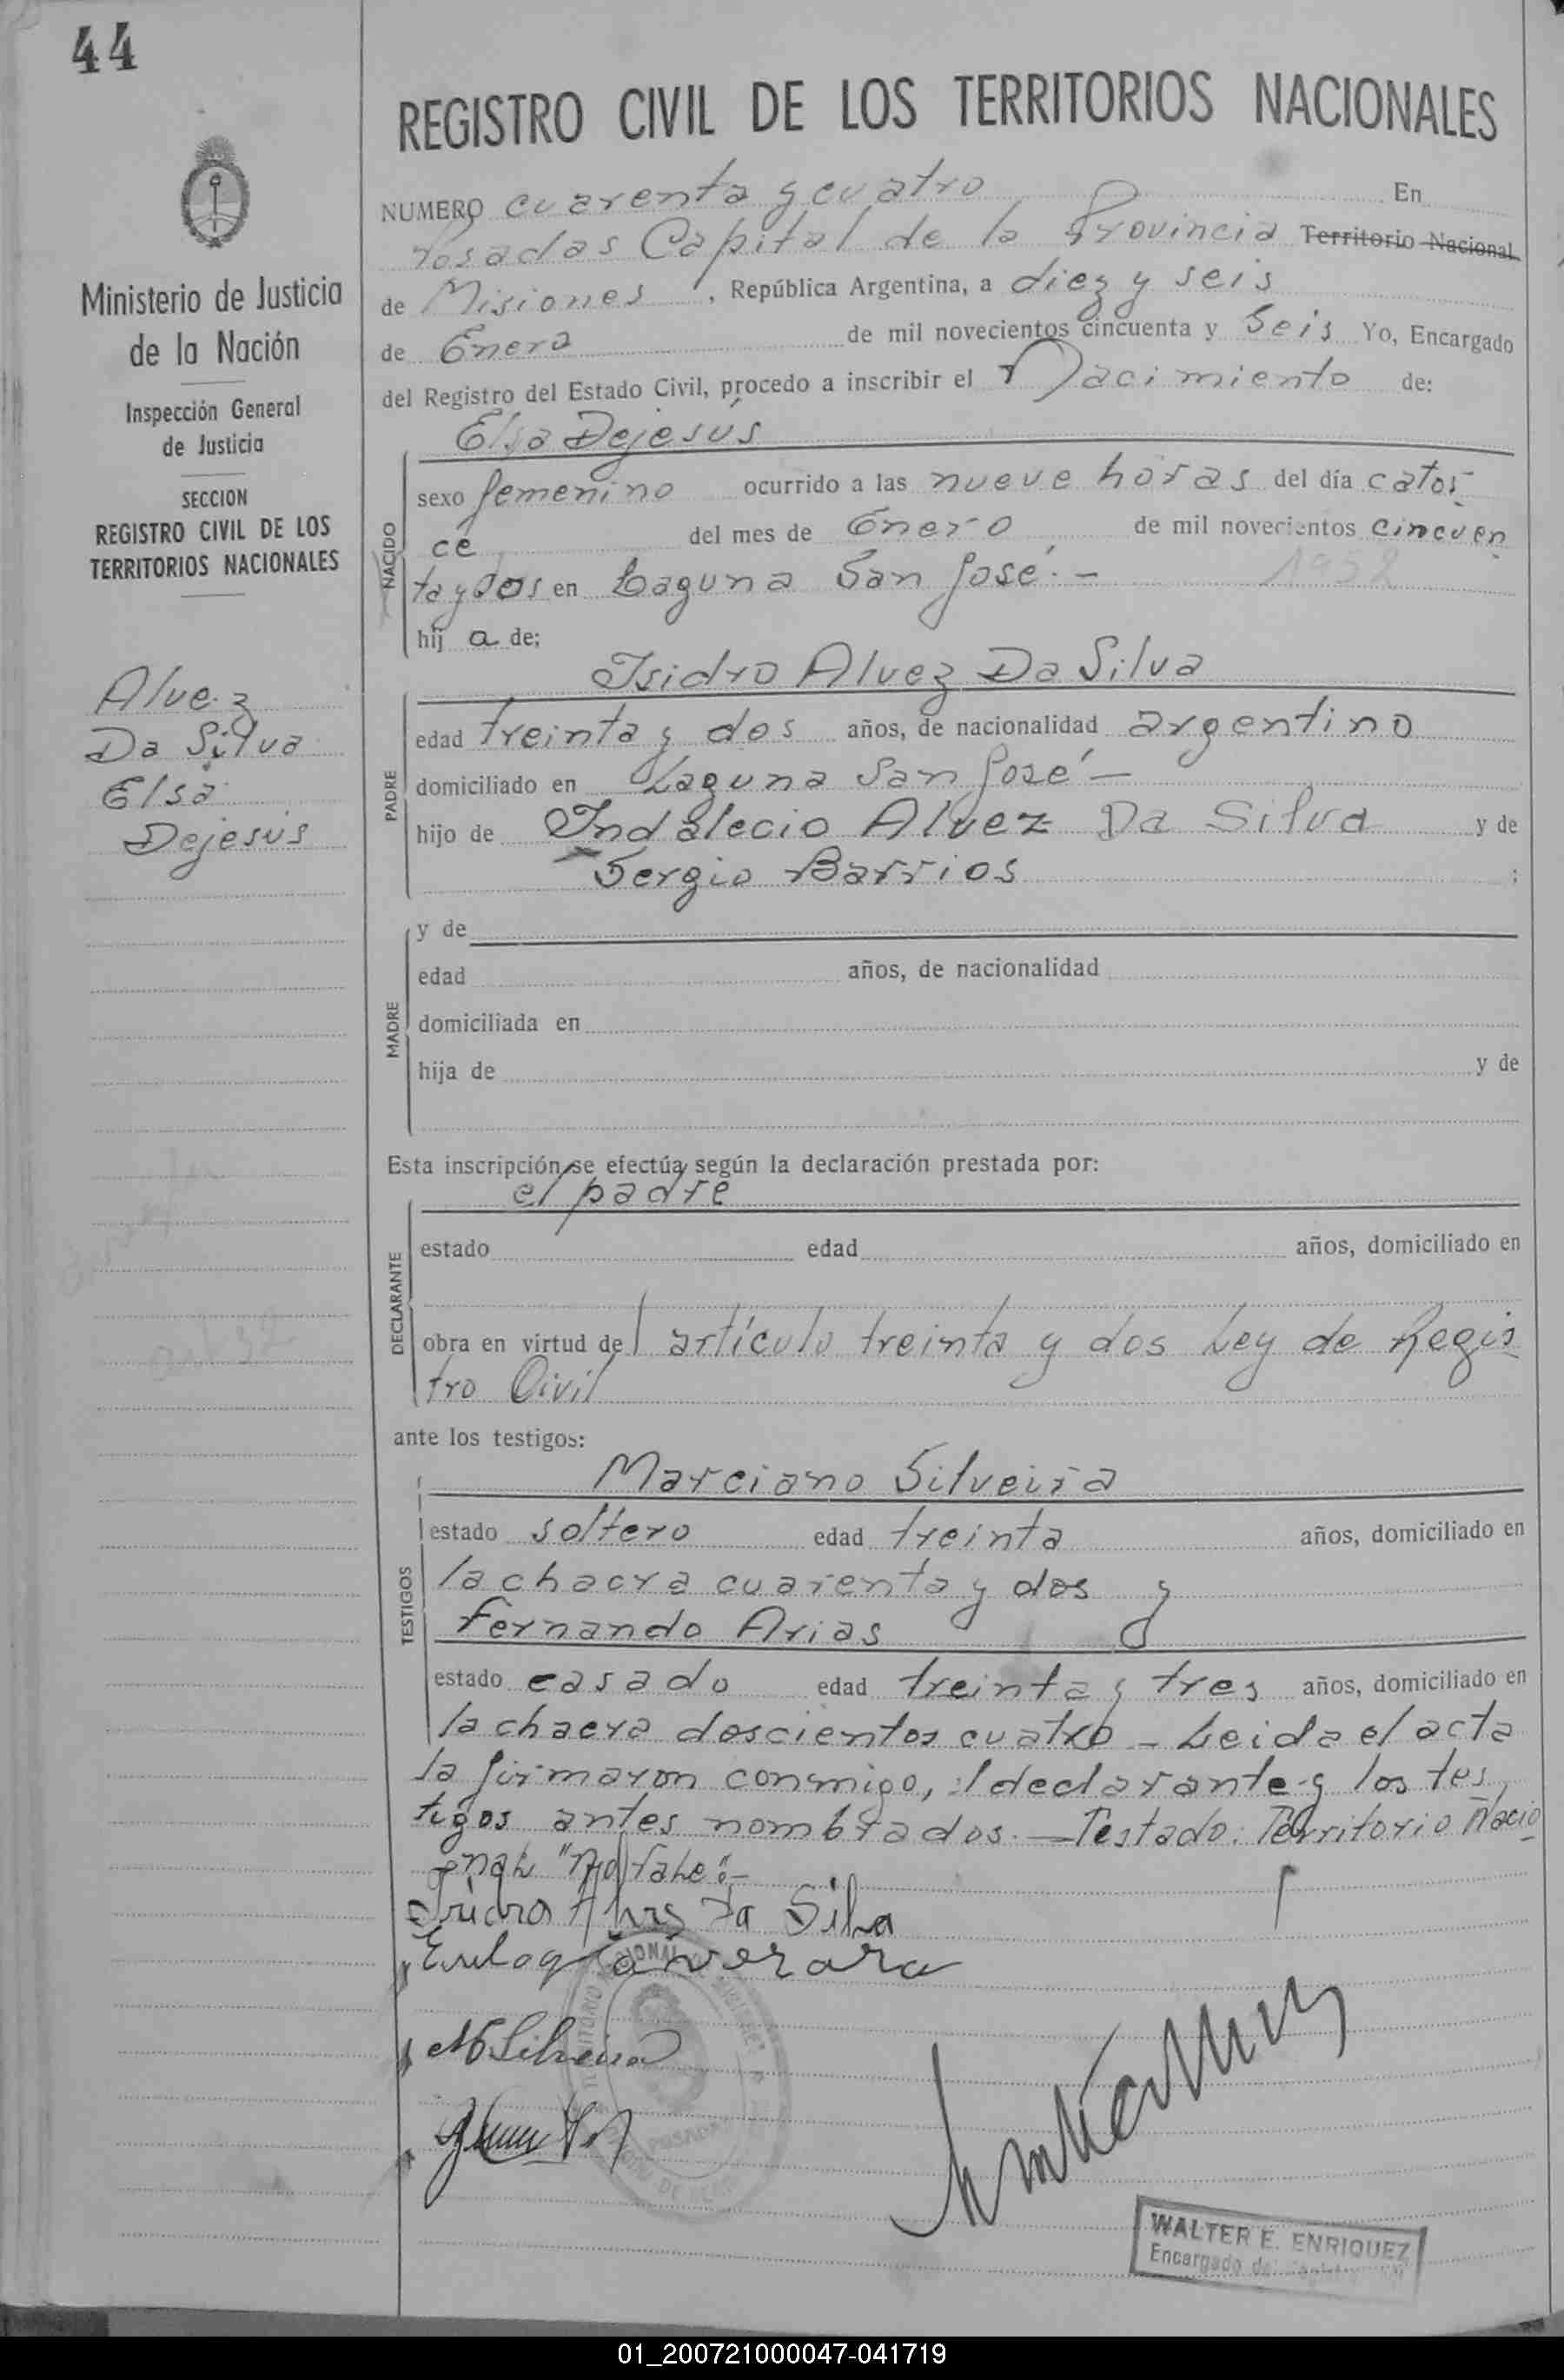 44
REGISTRO CIVIL DE LOS TERRITORIOS NACIONALES
Ministerio de Justicia
de la Nación
Inspección General
de Justicia
SECCION
REGISTRO CIVIL DE LOS
TERRITORIOS NACIONALES
Alvez
Da Silva
Elsa
Dejesús
NUMERO cuarenta y cuatro En
Posadas Capital de la Provincia Territorio Nacional
de Misiones, República Argentina, a diez y seis
de Enero de mil novecientos cincuenta y Seis Yo, Encargado
del Registro del Estado Civil, procedo a inscribir el Nacimiento de:
Elsa Dejesús
NACIDO
sexo femenino ocurrido a las nueve horas del día cator
ce del mes de Enero de mil novecientos cincuen
ta y dos en Laguna San José.- 1952
hij a de;
Isidro Alvez Da Silva
PADRE
edad treinta y dos años, de nacionalidad argentino
domiciliado en Laguna San José -
hijo de Indalecio Alvez Da Silva y de
Sergia Barrios ;
MADRE
y de
edad años, de nacionalidad
domiciliada en
hija de y de
Esta inscripción se efectúa según la declaración prestada por:
el padre
DECLARANTE
estado edad años, domiciliado en
obra en virtud del artículo treinta y dos Ley de Regis
tro Civil
ante los testigos:
Marciano Silveira
TESTIGOS
estado soltero edad treinta años, domiciliado en
la chacra cuarenta y dos y
Fernando Arias
estado casado edad treinta y tres años, domiciliado en
la chacra doscientos cuatro - Leida el acta
la firmaron conmigo, el declarante y los tes
tigos antes nombrados.- Testado: Territorio Nacio
nal "No Vale".-
Da Silva
M Silveira
POSADAS
WALTER E. ENRIQUEZ
Encargado del
01_200721000047-041719